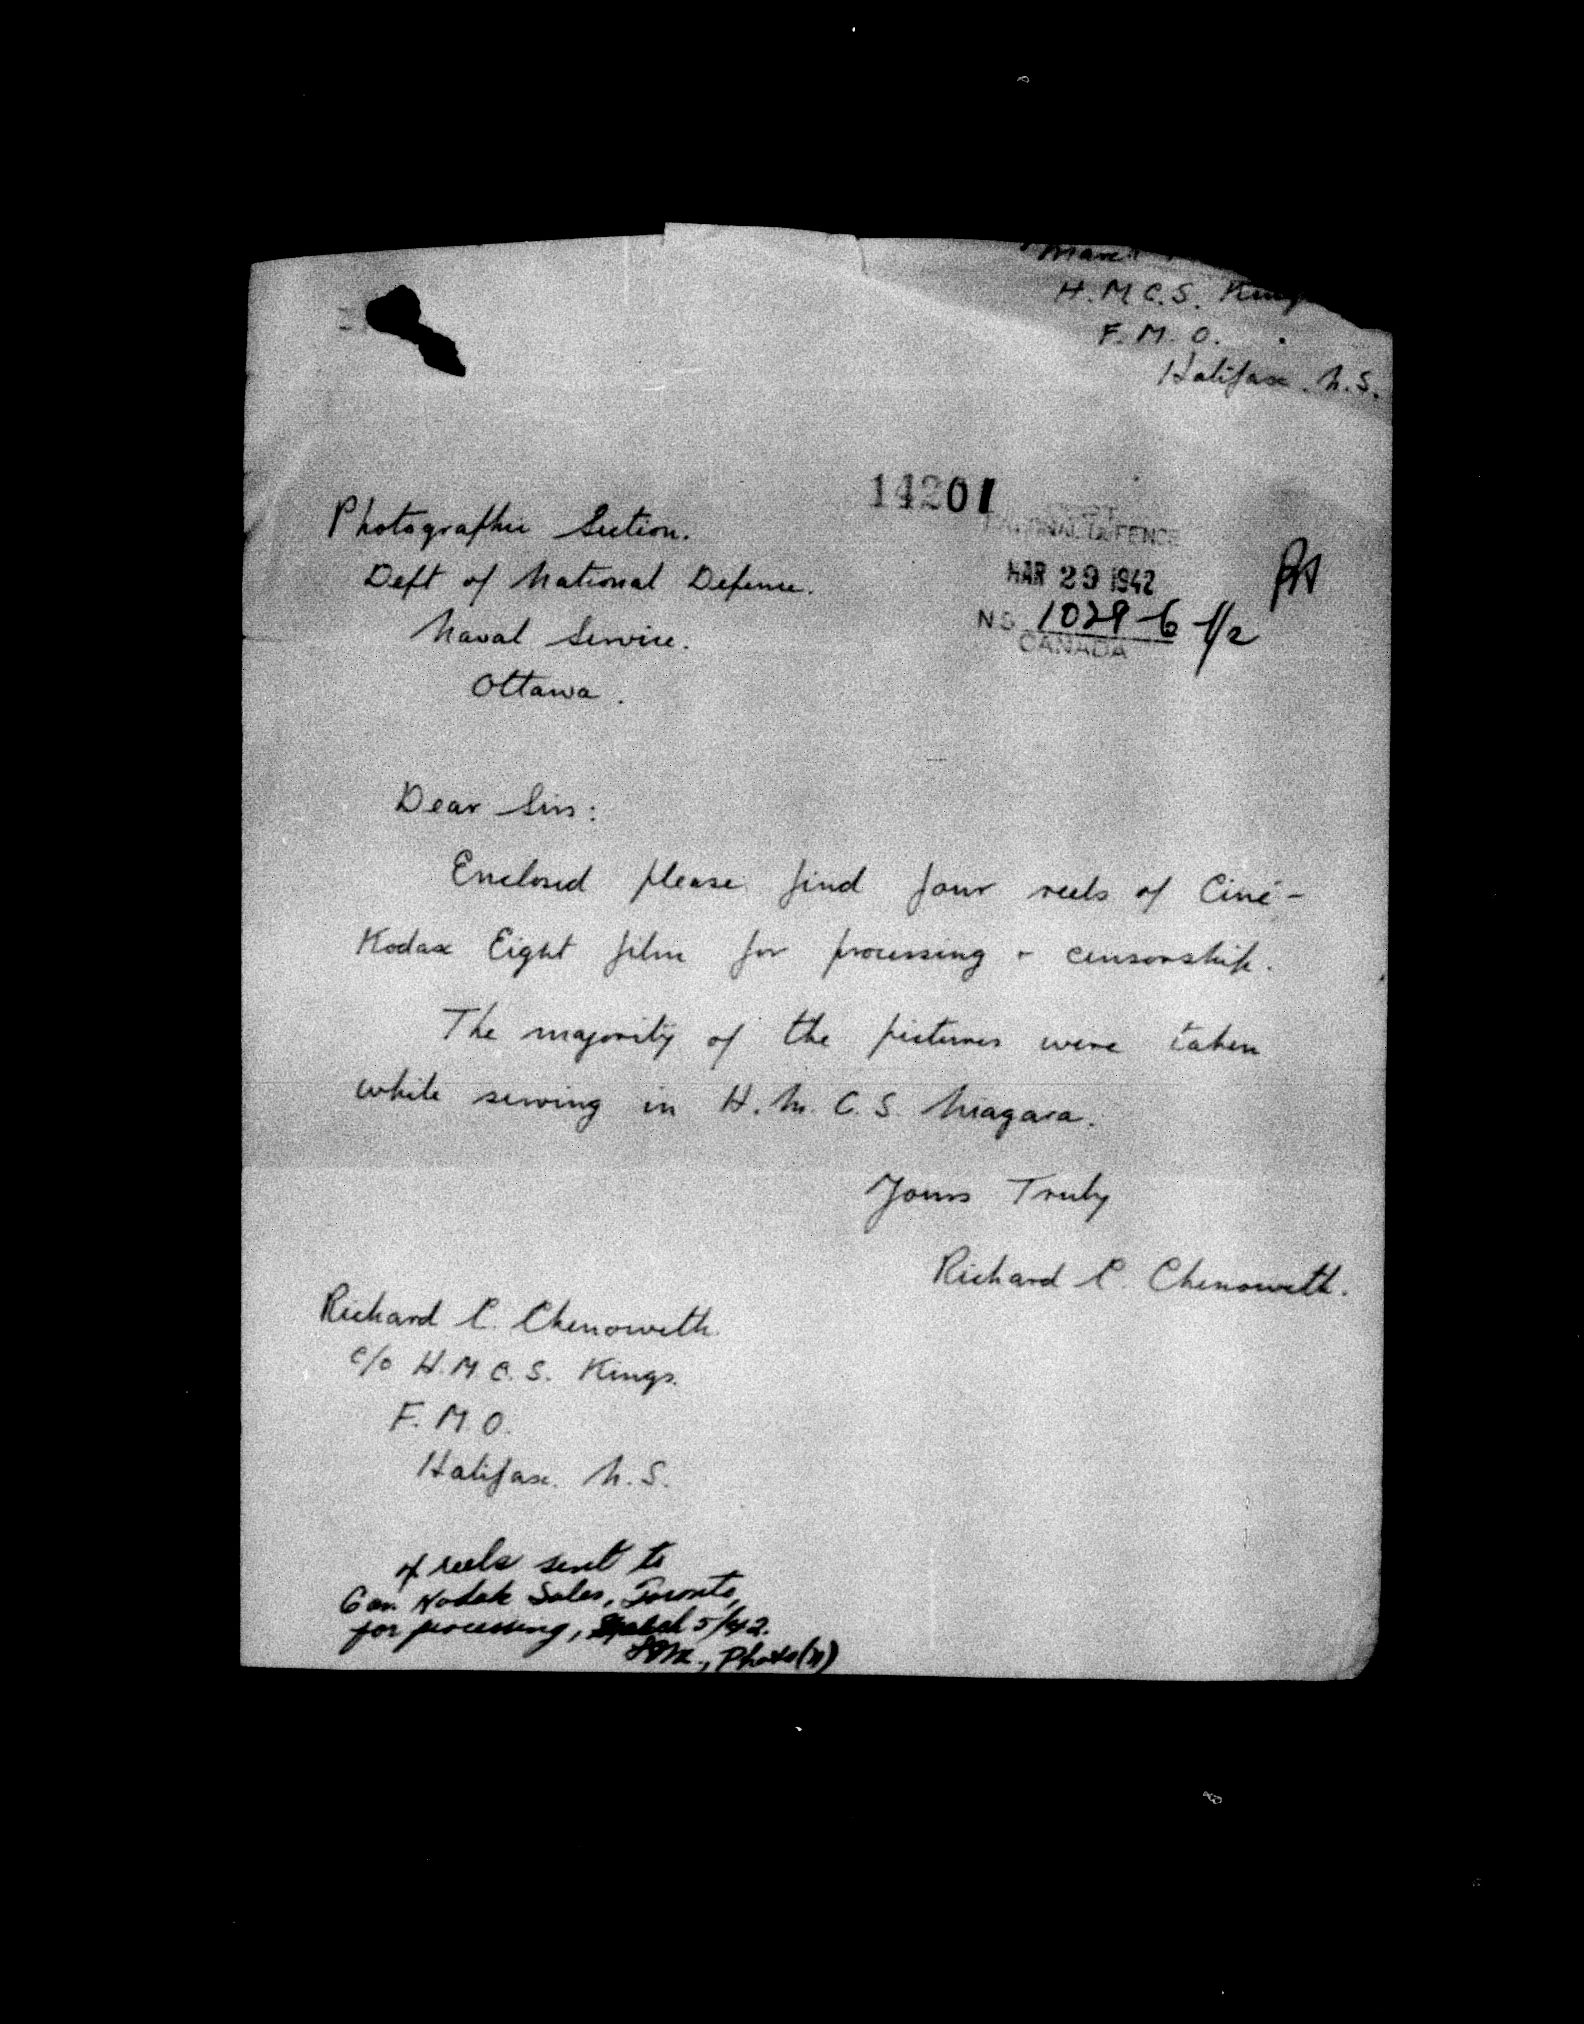 H.M.C.S. Kings
F.M.O.
Halifax. N.S.
14201
DEPT
NATIONAL DEFENCE
MAR 29 1942
NS 1029-6 1/2
CANADA
Photographic Section.
Dept of National Defence.
Naval Service.
Ottawa.
Dear Sirs:
Enclosed please find four reels of Ciné-
Kodax Eight film for processing + censorship.
The majority of the pictures were taken
while serving in H.M.C.S. Niagara.
Yours Truly
Richard C. Chenoweth.
Richard C. Chenoweth
c/o H.M.C.S. Kings.
F.M.O.
Halifax. N.S.
4 reels sent to
Can Kodak Sales, Toronto,
for processing, 5/42.
Photo(N)